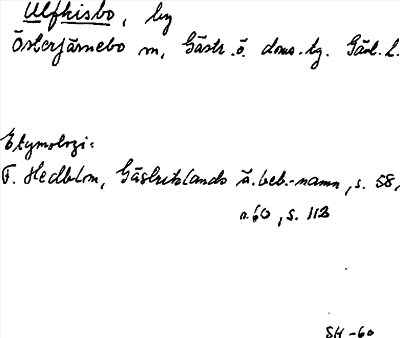 Ulfkisbo, by
Österfärnebo sn, Gästr. ö. doms. tg. Gävl. l.
Etymologi:
F. Hedblom, Gästriklands ä. beb.-namn, s. 58,
n. 60, s. 112
SH -60